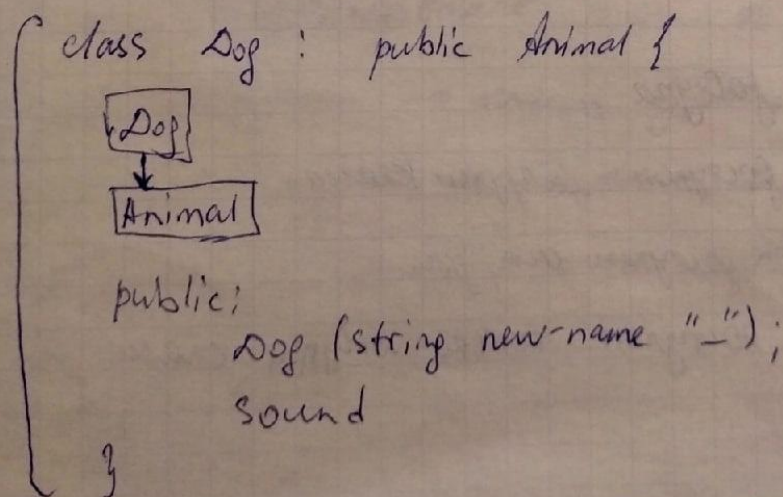 class Dog : public Animal {
Dog
Animal
public:
Dog (string new-name "_");
sound
}